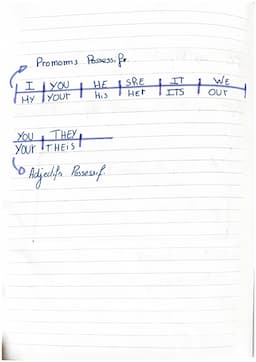 Pronoms Possessifs
I YOU HE SHE IT WE
MY YOUr His Her ITS OUr
YOU THEY
YOUr THEIS
Adjectifs Possessif